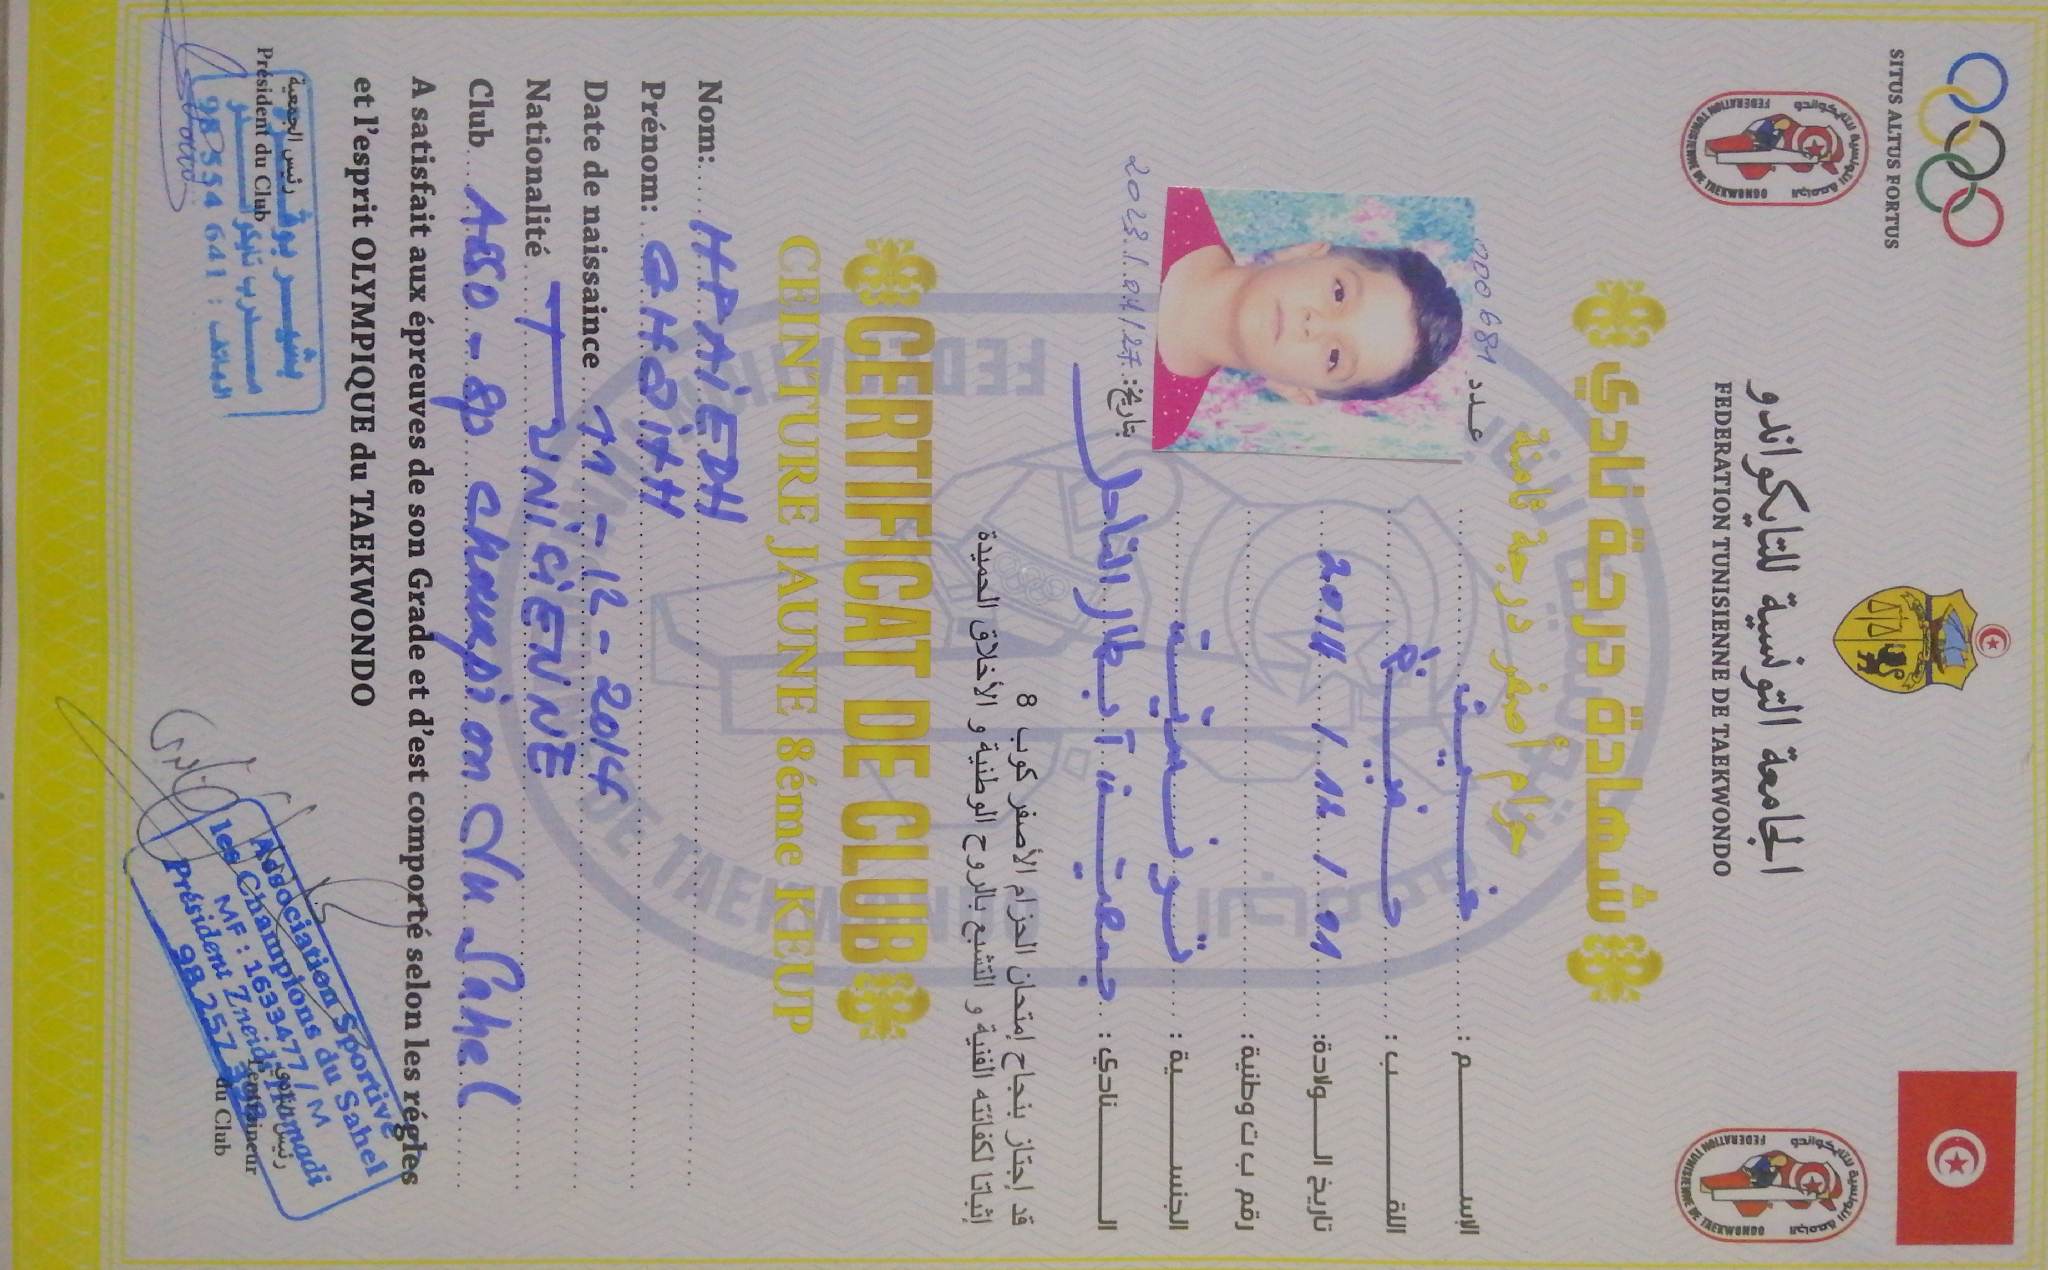 SITUS ALTUS FORTUS
الجامعة التونسية للتايكواندو
FEDERATION TUNISIENNE DE TAEKWONDO
شهادة درجة نادي
حزام أصفر درجة ثامنة
عدد 000 681
الإسم : غيث
اللقب :
تاريخ الولادة: 2014 / 12 / 11
رقم ب ت وطنية :
الجنسية : تونسية
النادي : جمعية أبطال الساحل
بتاريخ: 2023/04/27
قد إجتاز بنجاح إمتحان الحزام الأصفر كوب 8
إثباتا لكفائته الفنية و التشبع بالروح الوطنية و الأخلاق الحميدة
CERTIFICAT DE CLUB
CEINTURE JAUNE 8éme KEUP
Nom: HPAIEDH
Prénom: GHAITH
Date de naissaince 11-12-2014
Nationalité TUNICIENNE
Club ASSO-SP Champion du Sahel
A satisfait aux épreuves de son Grade et d'est comporté selon les régles
et l'esprit OLYMPIQUE du TAEKWONDO
رئيس الجمعية
Président du Club
مدرب تايكواندو
الهاتف : 98 354 641
Lentraineur
du Club
Association Sportive
les Champions du Sahel
MF : 1633477/M
Président Zneidi
98 257